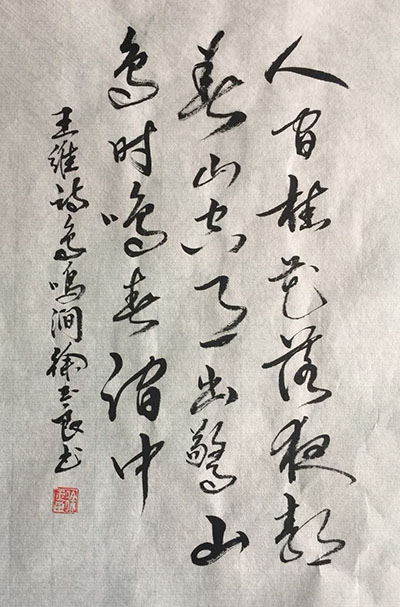 人閒桂花落夜静
春山空月出驚山
鸟时鸣春涧中
王维诗鸟鸣涧徐玉良书